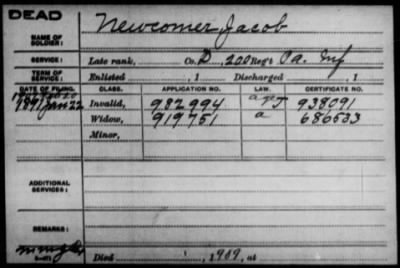 DEAD
NAME OF SOLDIER: Newcomer Jacob
SERVICE: Late rank, Co. D, 200 Reg't Pa. Inf
TERM OF SERVICE: Enlisted , 1 Discharged , 1
DATE OF FILING. CLASS. APPLICATION NO. LAW. CERTIFICATE NO.
Invalid, 982994 938091
1891 Jan 22 Widow, 919751 a 686533
Minor,
ADDITIONAL SERVICES:
REMARKS:
Died , 1909, at